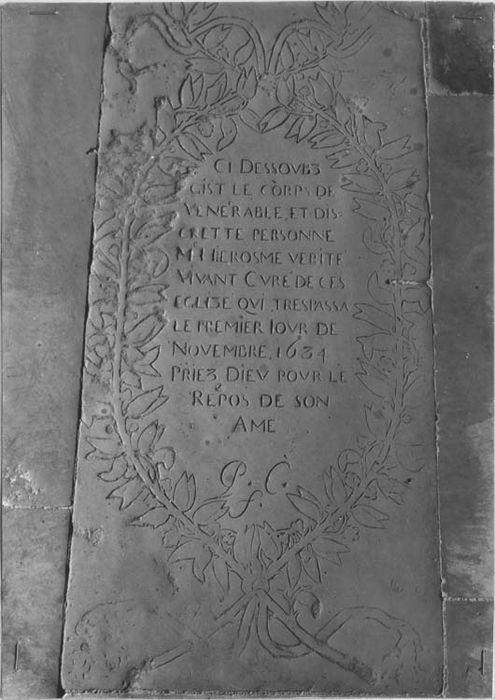 CI DESSOUBZ
GIST LE CORPS DE
VENERABLE, ET DIS-
CRETTE PERSONNE
M HIEROSME VERITÉ
VIVANT CVRÉ DE CES
EGLIZE QVI TRESPASSA
LE PREMIER IOVR DE
NOVEMBRE, 1634
PRIEZ DIEV POVR LE
REPOS DE SON
AME